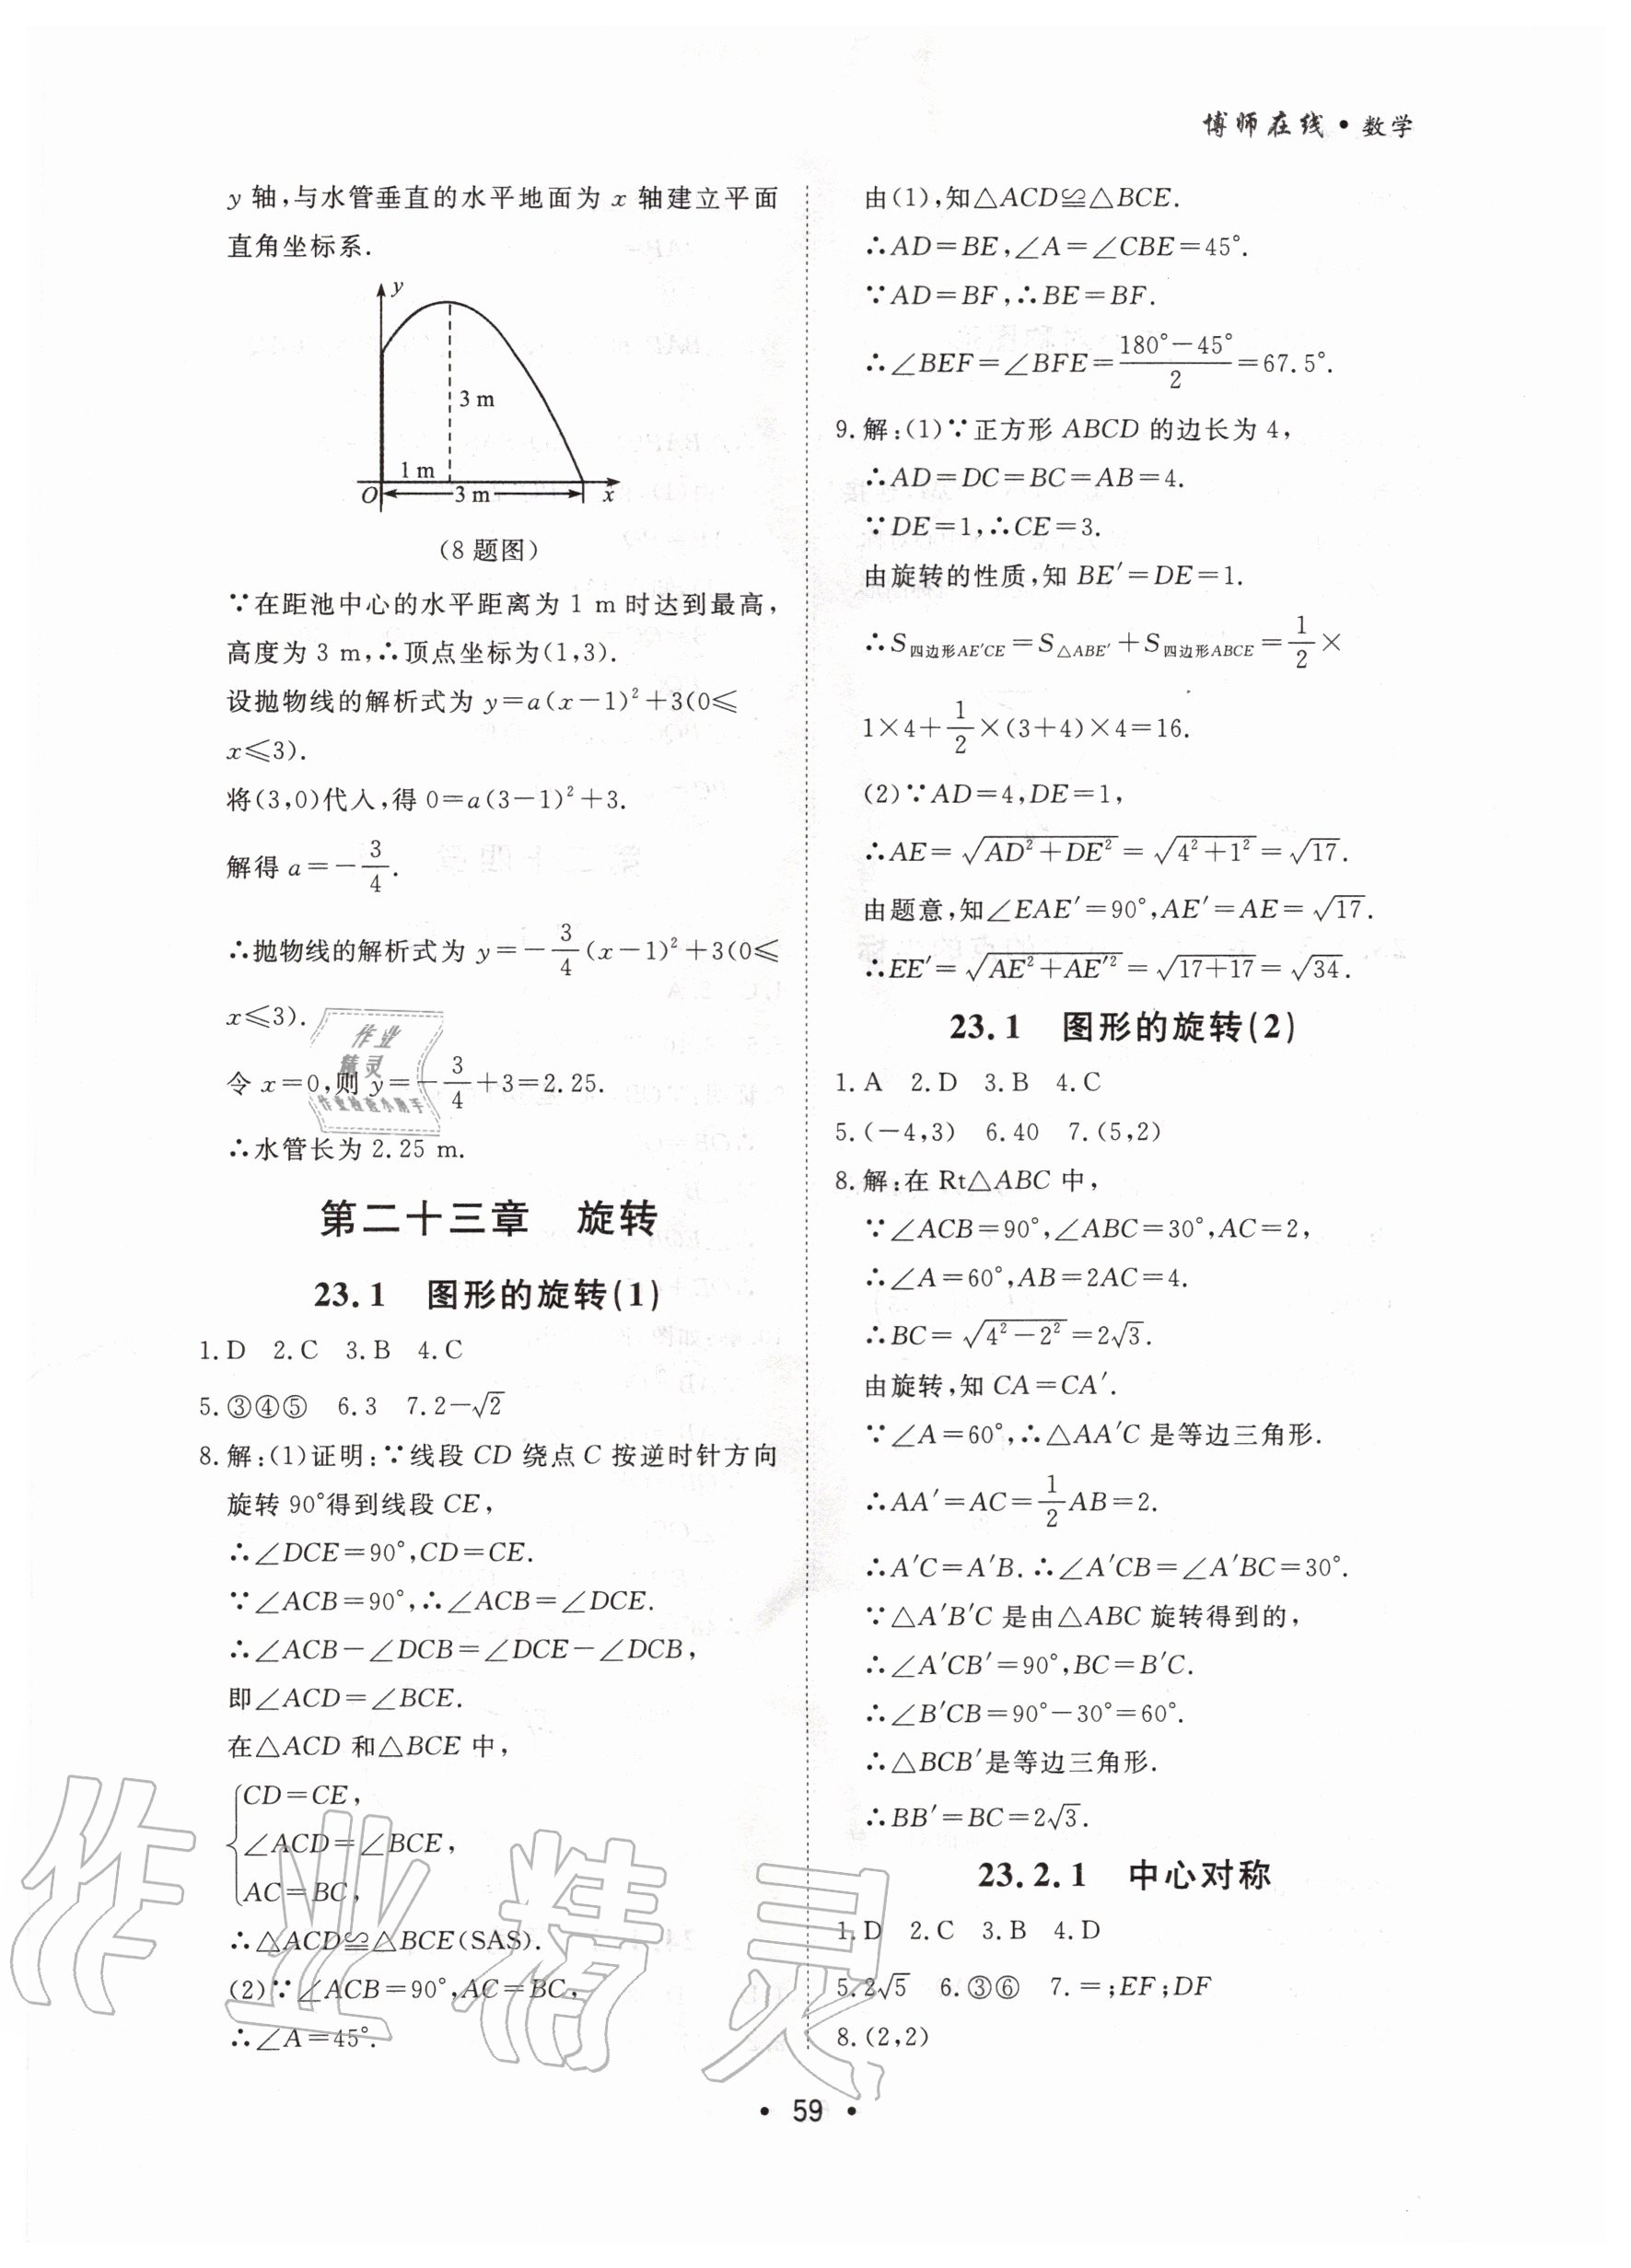 博师在线·数学
y 轴,与水管垂直的水平地面为 x 轴建立平面
直角坐标系.
y
3 m
1 m
O
3 m
x
(8题图)
∵在距池中心的水平距离为 1 m 时达到最高,
高度为 3 m,∴顶点坐标为(1,3).
设抛物线的解析式为 y=a(x-1)²+3(0≤
x≤3).
将(3,0)代入,得 0=a(3-1)²+3.
解得 a=-3/4.
∴抛物线的解析式为 y=-3/4(x-1)²+3(0≤
x≤3).
令 x=0,则 y=-3/4+3=2.25.
∴水管长为 2.25 m.
第二十三章 旋转
23.1 图形的旋转(1)
1.D 2.C 3.B 4.C
5.③④⑤ 6.3 7.2-√2
8.解:(1)证明:∵线段 CD 绕点 C 按逆时针方向
旋转 90°得到线段 CE,
∴∠DCE=90°,CD=CE.
∵∠ACB=90°,∴∠ACB=∠DCE.
∴∠ACB-∠DCB=∠DCE-∠DCB,
即∠ACD=∠BCE.
在△ACD 和△BCE 中,
CD=CE,
∠ACD=∠BCE,
AC=BC,
∴△ACD≌△BCE(SAS).
(2)∵∠ACB=90°,AC=BC,
∴∠A=45°.
由(1),知△ACD≌△BCE.
∴AD=BE,∠A=∠CBE=45°.
∵AD=BF,∴BE=BF.
∴∠BEF=∠BFE=(180°-45°)/2=67.5°.
9.解:(1)∵正方形 ABCD 的边长为 4,
∴AD=DC=BC=AB=4.
∵DE=1,∴CE=3.
由旋转的性质,知 BE′=DE=1.
∴S四边形AE′CE=S△ABE′+S四边形ABCE=1/2×
1×4+1/2×(3+4)×4=16.
(2)∵AD=4,DE=1,
∴AE=√(AD²+DE²)=√(4²+1²)=√17.
由题意,知∠EAE′=90°,AE′=AE=√17.
∴EE′=√(AE²+AE′²)=√(17+17)=√34.
23.1 图形的旋转(2)
1.A 2.D 3.B 4.C
5.(-4,3) 6.40 7.(5,2)
8.解:在 Rt△ABC 中,
∵∠ACB=90°,∠ABC=30°,AC=2,
∴∠A=60°,AB=2AC=4.
∴BC=√(4²-2²)=2√3.
由旋转,知 CA=CA′.
∵∠A=60°,∴△AA′C 是等边三角形.
∴AA′=AC=1/2AB=2.
∴A′C=A′B.∴∠A′CB=∠A′BC=30°.
∵△A′B′C 是由△ABC 旋转得到的,
∴∠A′CB′=90°,BC=B′C.
∴∠B′CB=90°-30°=60°.
∴△BCB′是等边三角形.
∴BB′=BC=2√3.
23.2.1 中心对称
1.D 2.C 3.B 4.D
5.2√5 6.③⑥ 7.=;EF;DF
8.(2,2)
• 59 •
作业
精灵
作业检查小助手
作业精灵